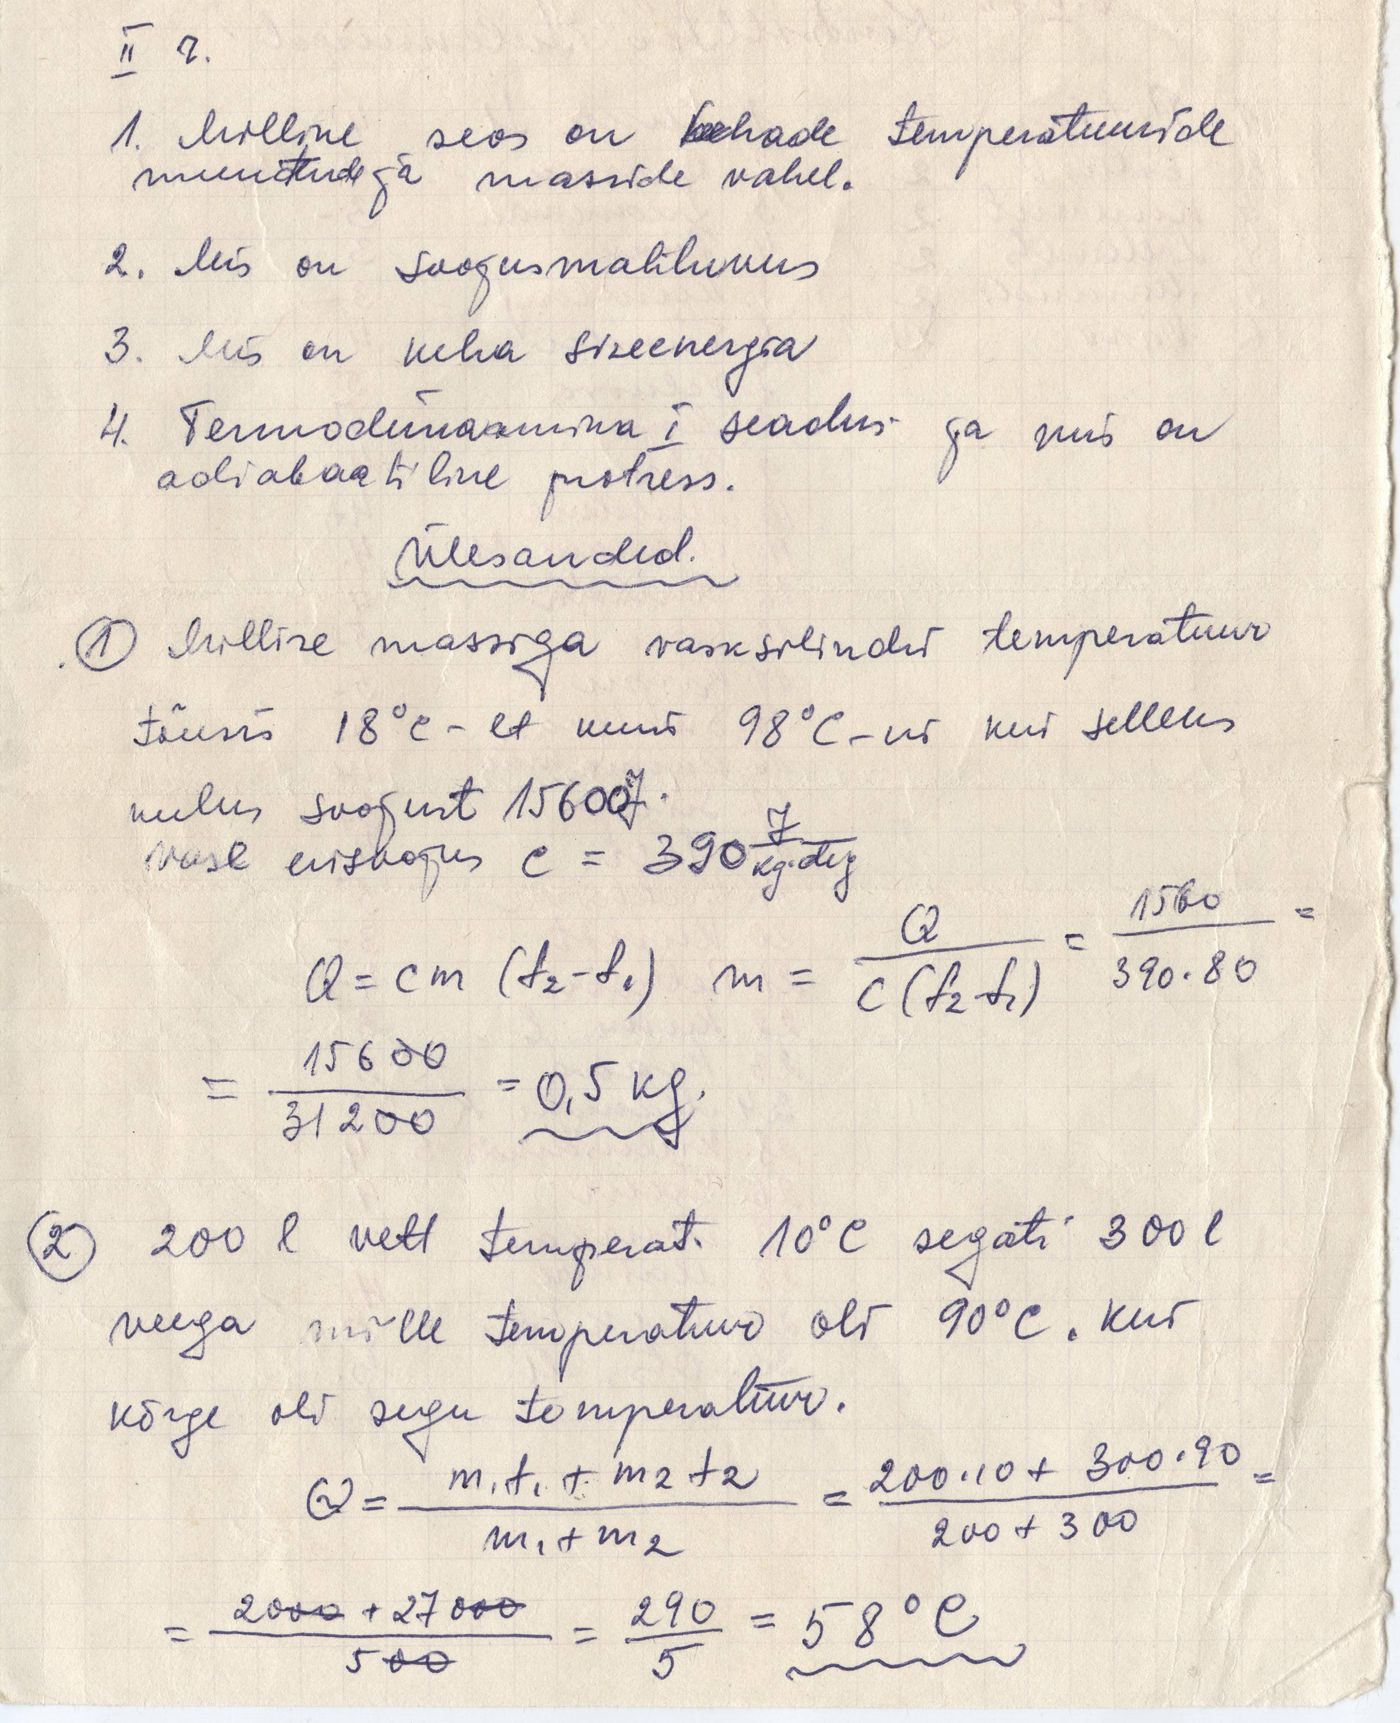 II r.
1. Milline seos on kehade temperatuuride
muutudega masside vahel.
2. Mis on soojusmahtuvus
3. Mis on keha siseenergia
4. Termodünaamika I seadus ja mis on
adiabaatiline protsess.
Ülesanded.
1 Millise massiga vasksilindri temperatuur
tõusis 18°C-lt kuni 98°C-ni kui selleks
kulus soojust 15600J.
Vase erisoojus c = 390 J/kg·deg
Q = cm (t₂-t₁) m = Q/c(t₂-t₁) = 1560/390·80 =
= 15600/31200 = 0,5 kg.
2 200 l vett temperat. 10°C segati 300 l
veega mille temperatuur oli 90°C. Kui
kõrge oli segu temperatuur.
Q = m₁t₁ + m₂t₂/m₁+m₂ = 200·10 + 300·90/200+300 =
= 2000 + 27000/500 = 290/5 = 58°C